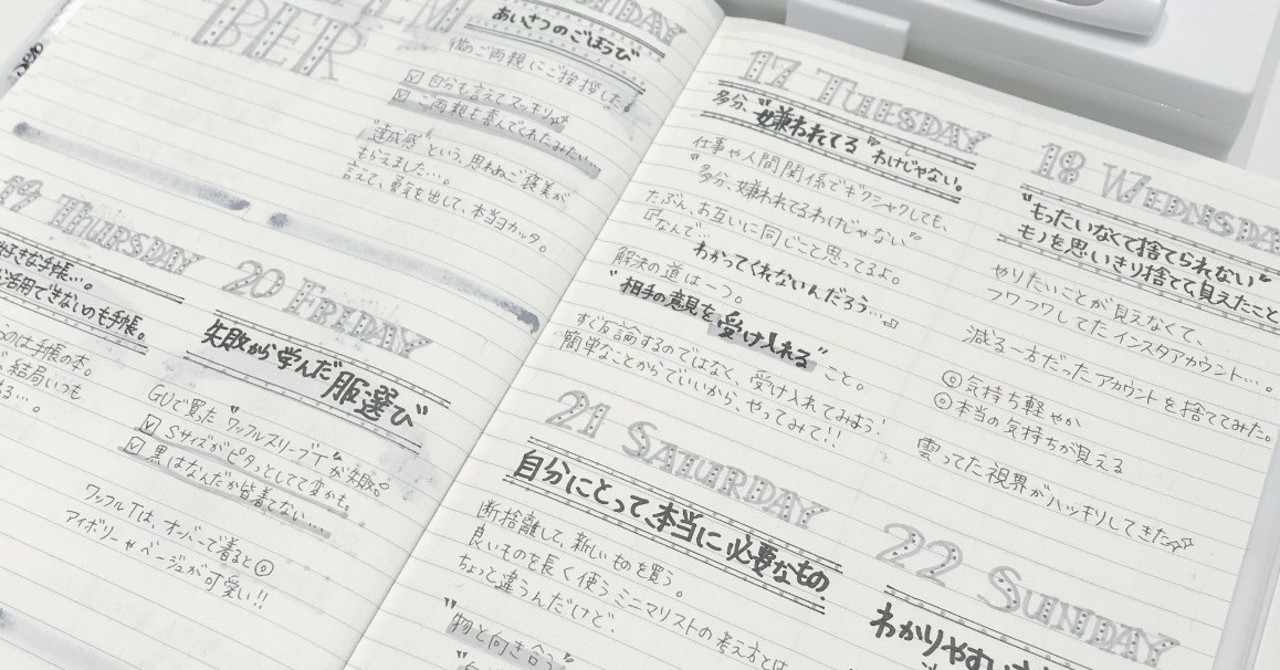 BER
DAY
あいさつのごほうび
彼のご両親にご挨拶した。
☑ 自分も言えてスッキリ
☑ ご両親も喜んでくれたみたい…
"達成感"という、思わぬご褒美が
もらえました…。
言えて、勇気を出して、本当ヨカッタ。
19 THURSDAY
好きな手帳…。
活用できないのも手帳。
のは手帳の本。
結局いつも
る…。
20 FRIDAY
失敗から学んだ服選び
GUで買った"ワッフルスリーブT"が失敗。
☑ Sサイズがピタっとしてて変かも。
☑ 黒はなんだか皆着てない…
ワッフルTは、オーバーで着ると◎
アイボリーやベージュが可愛い!!
17 TUESDAY
多分、"嫌われてる"わけじゃない。
仕事や人間関係でギクシャクしても、
"多分、嫌われてるわけじゃない"
たぶん、お互いに同じこと思ってるよ。
『なんで…
わかってくれないんだろう…』
解決の道は一つ。
"相手の意見を受け入れる"こと。
すぐ反論するのではなく、受け入れてみよう!
簡単なことからでいいから、やってみて!!
18 WEDNESDA
"もったいなくて捨てられない"
モノを思いきり捨てて、見えたこと
やりたいことが見えなくて、
フワフワしてたインスタアカウント…。
減る一方だったアカウントを捨ててみた。
◎気持ち軽やか
◎本当の気持ちが見える
曇ってた視界がハッキリしてきた☆
21 SATURDAY
自分にとって、本当に必要なもの
断捨離して、新しいものを買う。
良いものを長く使うミニマリストの考え方とは
ちょっと違うんだけど、
"物と向き合う"
22 SUNDAY
わかりやすい